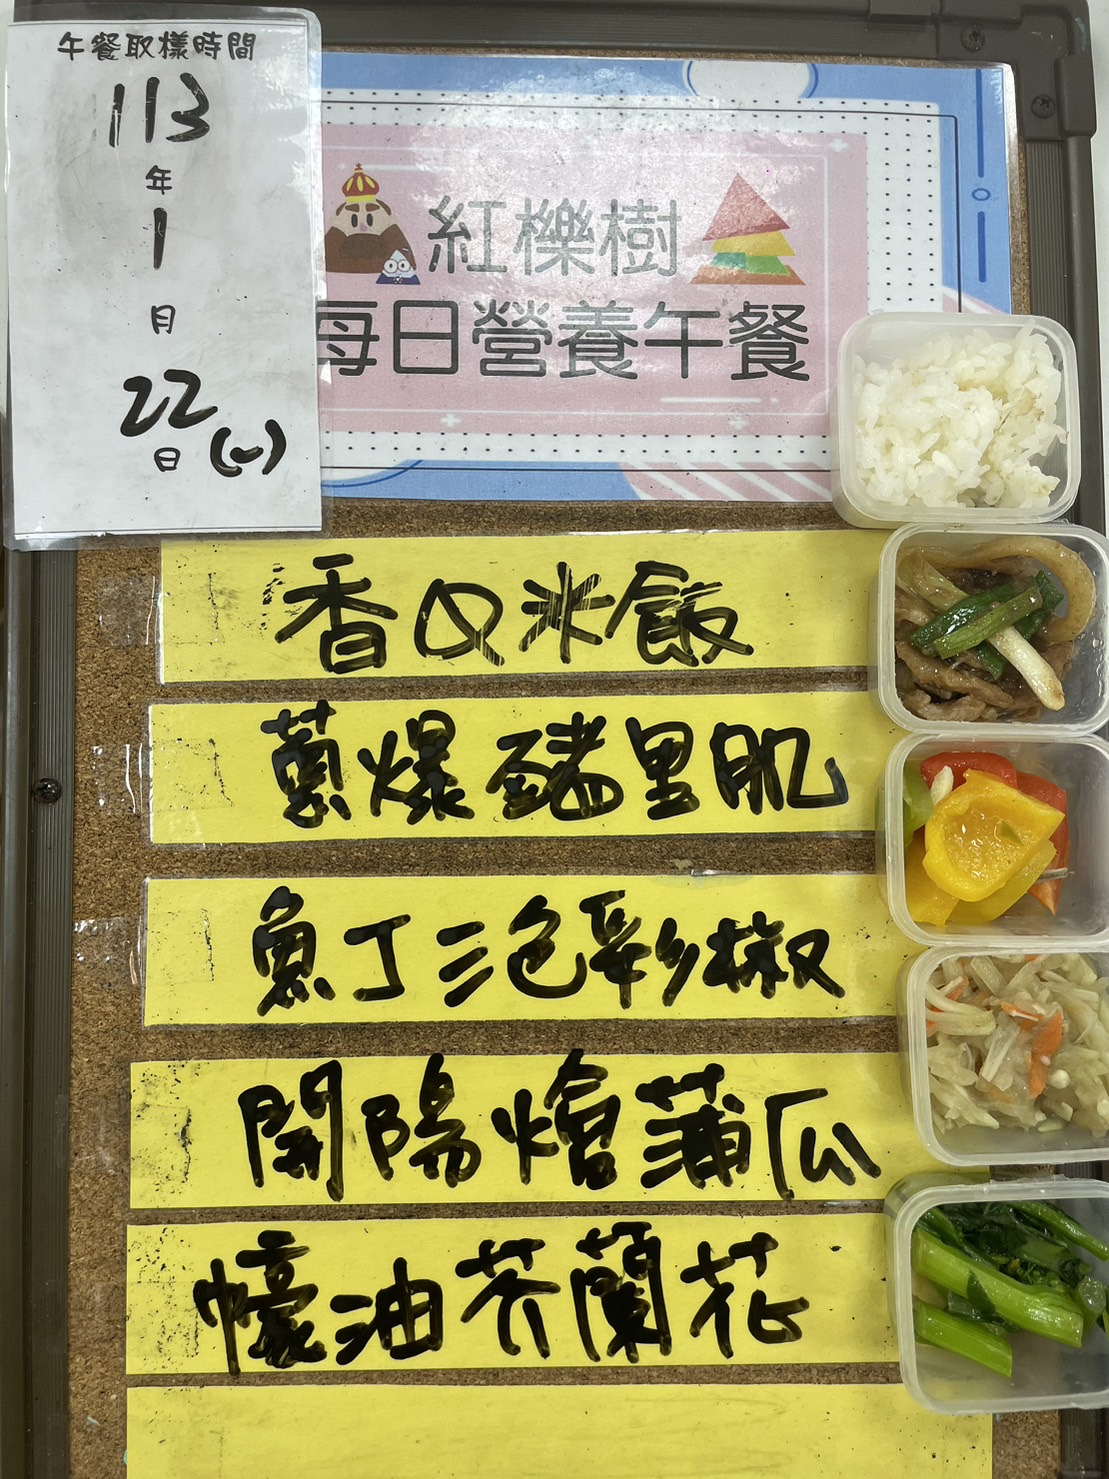 午餐取樣時間
113
年
1
月
22
日(一)
紅櫟樹
每日營養午餐
香Q米飯
蔥爆豬里肌
魚丁三色彩椒
開陽燴蒲瓜
蠔油芥蘭花